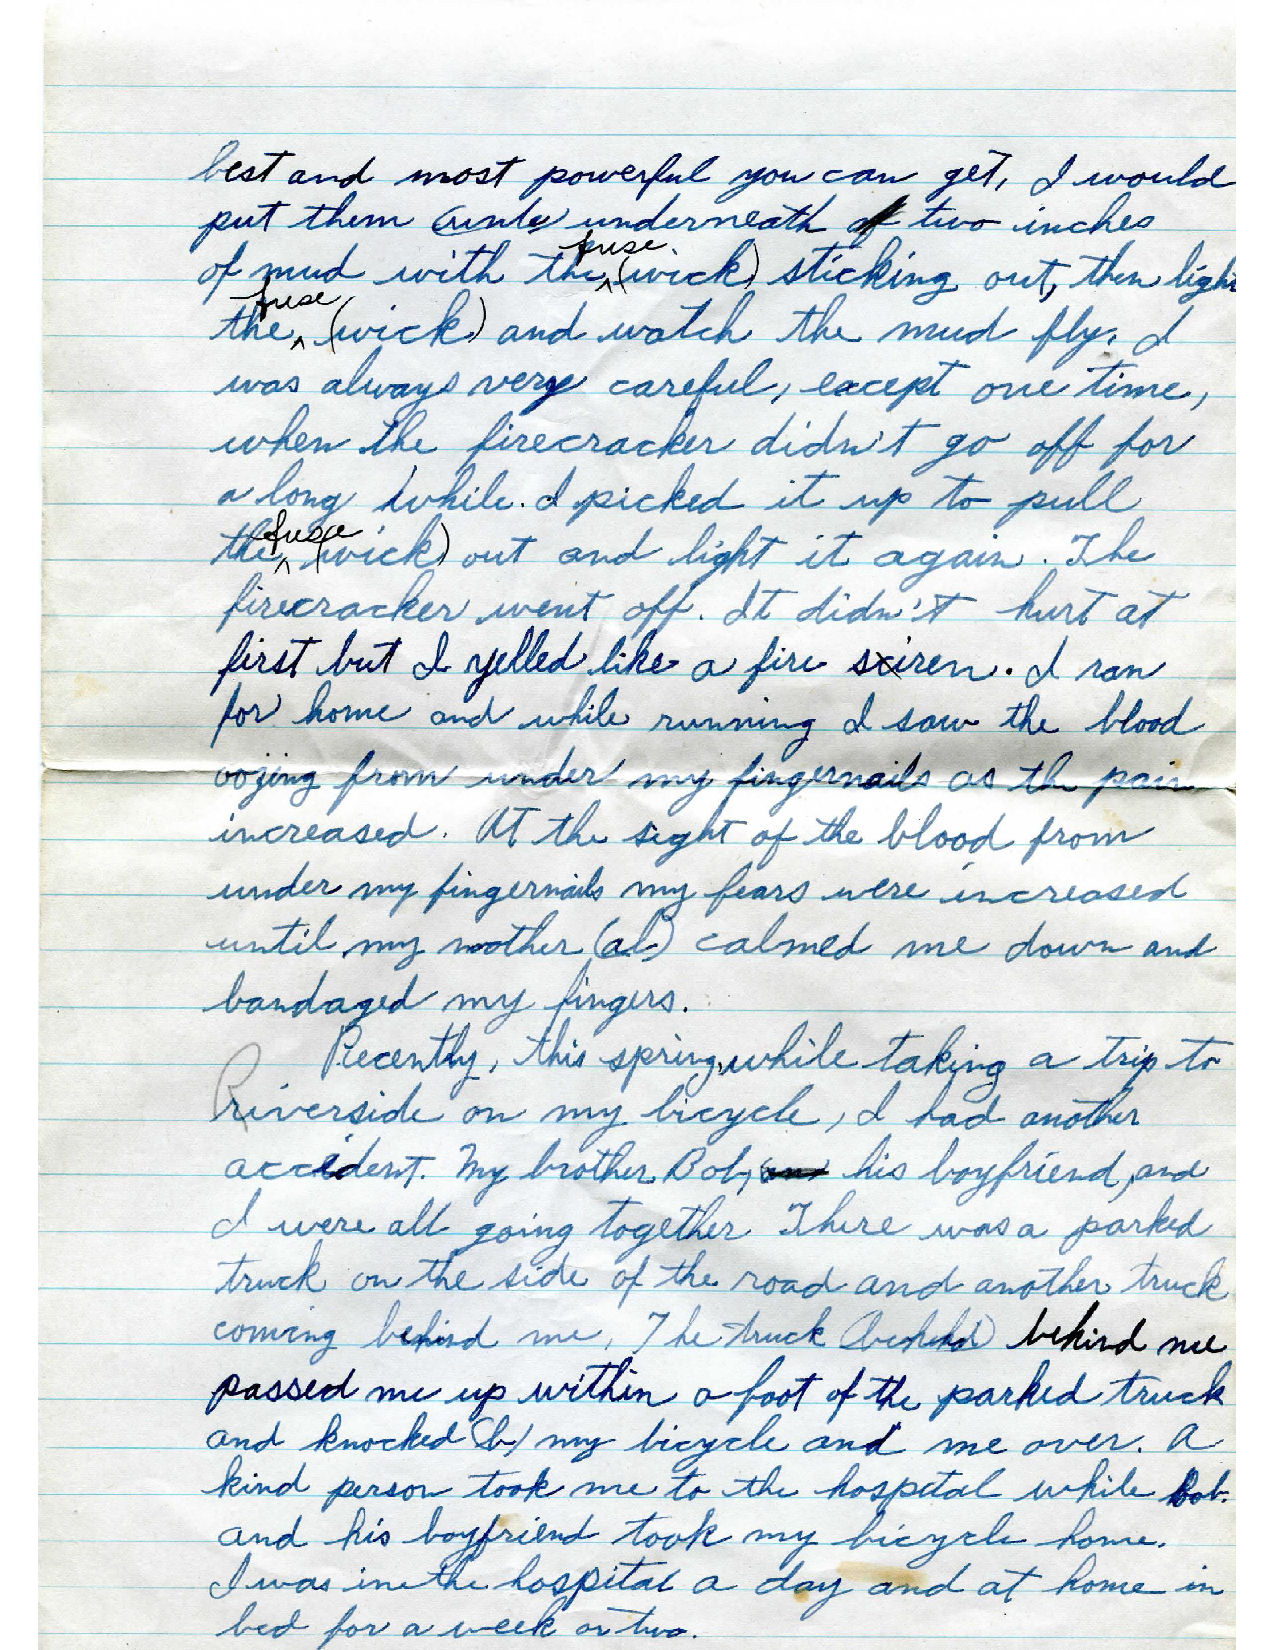 best and most powerful you can get, I would
put them (unde) underneath of two inches
of mud with the ^fuse (wick) sticking out, then light
the ^fuse (wick) and watch the mud fly. I
was always very careful, except one time,
when the firecracker didn't go off for
a long while. I picked it up to pull
the ^fuse (wick) out and light it again. The
firecracker went off. It didn't hurt at
first but I yelled like a fire siren. I ran
for home and while running I saw the blood
oozing from under my fingernails as the pain
increased. At the sight of the blood from
under my fingernails my fears were increased
until my mother (al) calmed me down and
bandaged my fingers.
Recently, this spring, while taking a trip to
Riverside on my bicycle, I had another
accident. My brother Bob, his boyfriend, and
I were all going together. There was a parked
truck on the side of the road and another truck
coming behind me. The truck (behind) behind me
passed me up within a foot of the parked truck
and knocked (b) my bicycle and me over. A
kind person took me to the hospital while Bob
and his boyfriend took my bicycle home.
I was in the hospital a day and at home in
bed for a week or two.